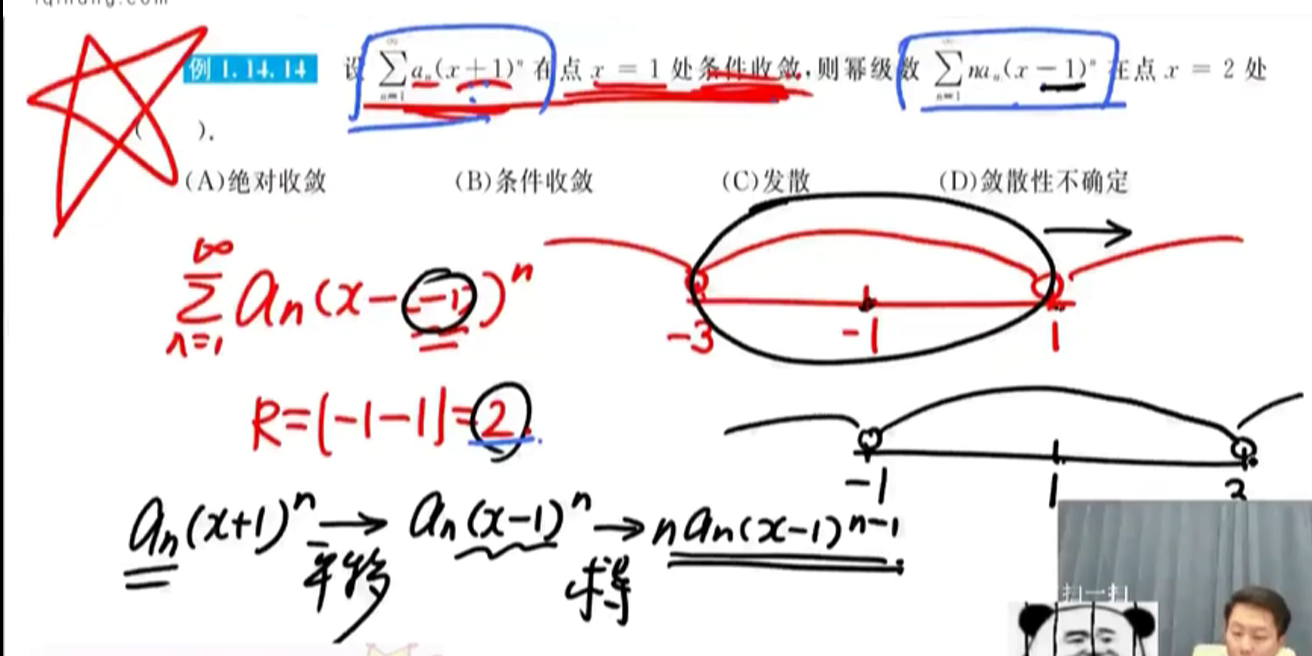 例 1.14.14 设 $\sum_{n=1}^{\infty} a_n(x+1)^n$ 在点 x = 1 处条件收敛,则幂级数 $\sum_{n=1}^{\infty} na_n(x-1)^n$ 在点 x = 2 处
( ).
(A)绝对收敛 (B)条件收敛 (C)发散 (D)敛散性不确定
$\sum_{n=1}^{\infty} a_n(x--1)^n$
-3 -1 1
R=|-1-1|=2
-1 1 3
$a_n(x+1)^n$ → $a_n(x-1)^n$ → $na_n(x-1)^{n-1}$
平移 求导
扫一扫